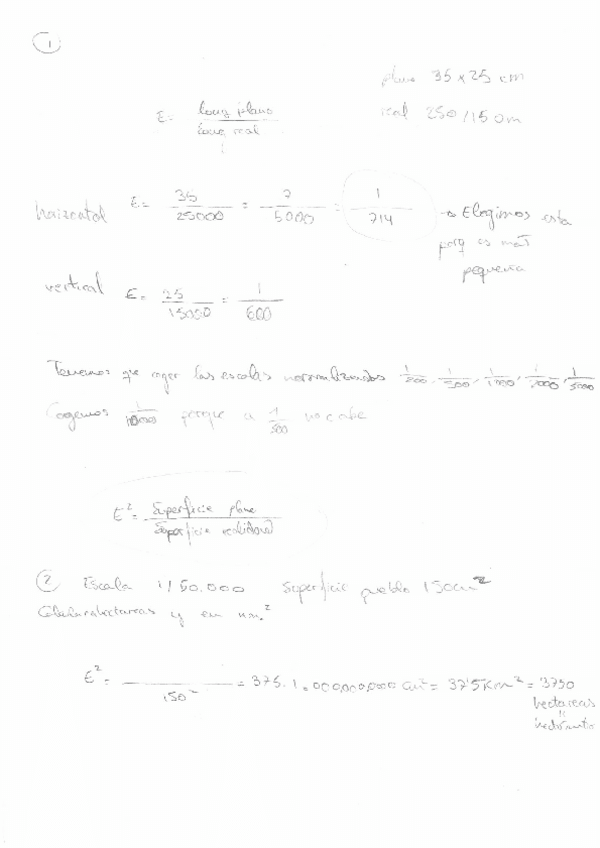 1
plano 35 x 25 cm
real 250/150m
E = long plano / long real
horizontal E = 35/25000 = 7/5000 = 1/714 → Elegimos esta
porq es mas
pequeña
vertical E = 25/15000 = 1/600
Tenemos que coger las escalas normalizadas 1/200, 1/500, 1/1000, 1/2000, 1/5000
Cogemos 1/1000 porque a 1/500 no cabe
E² = Superficie plano / Superficie realidad
2 Escala 1/50.000 Superficie pueblo 150cm²
hectareas y en km²
E² = / 150² = 375.1.000.000.000 cm² = 37'5 Km² = 3750
hectareas
=